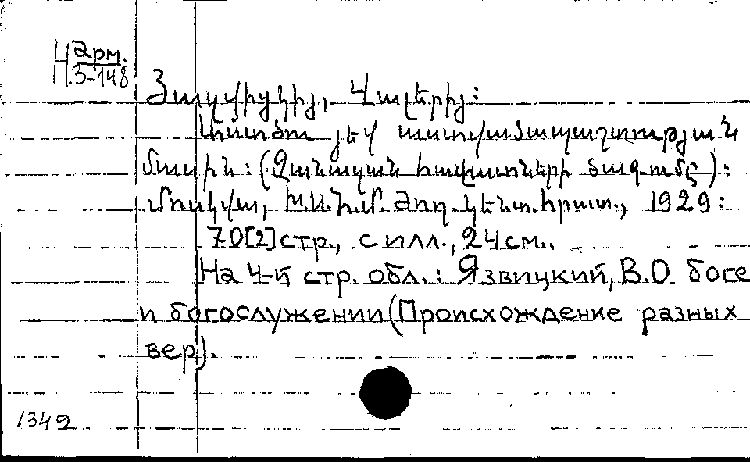 Арм.
Н.3-148
Յազվիցկիյ, Վալերիյ:
Աստծու յեվ աստվածապաշտության
մասին: (Զանազան հավատների ծագումը):
Մոսկվա, ԽՍՀՄ Ժող. կենտ. հրատ., 1929:
70[2]стр., с илл., 24см..
На 4-й стр. обл.: Язвицкий, В. О боге
и богослужении (Происхождение разных
вер).
1349